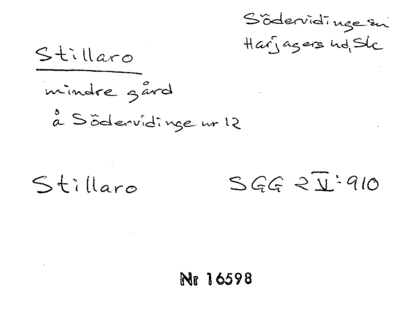 Södervidinge sn
Harjagers hd, Sk
Stillaro
mindre gård
å Södervidinge nr 12
Stillaro SGG 2 V: 910
Nr 16598